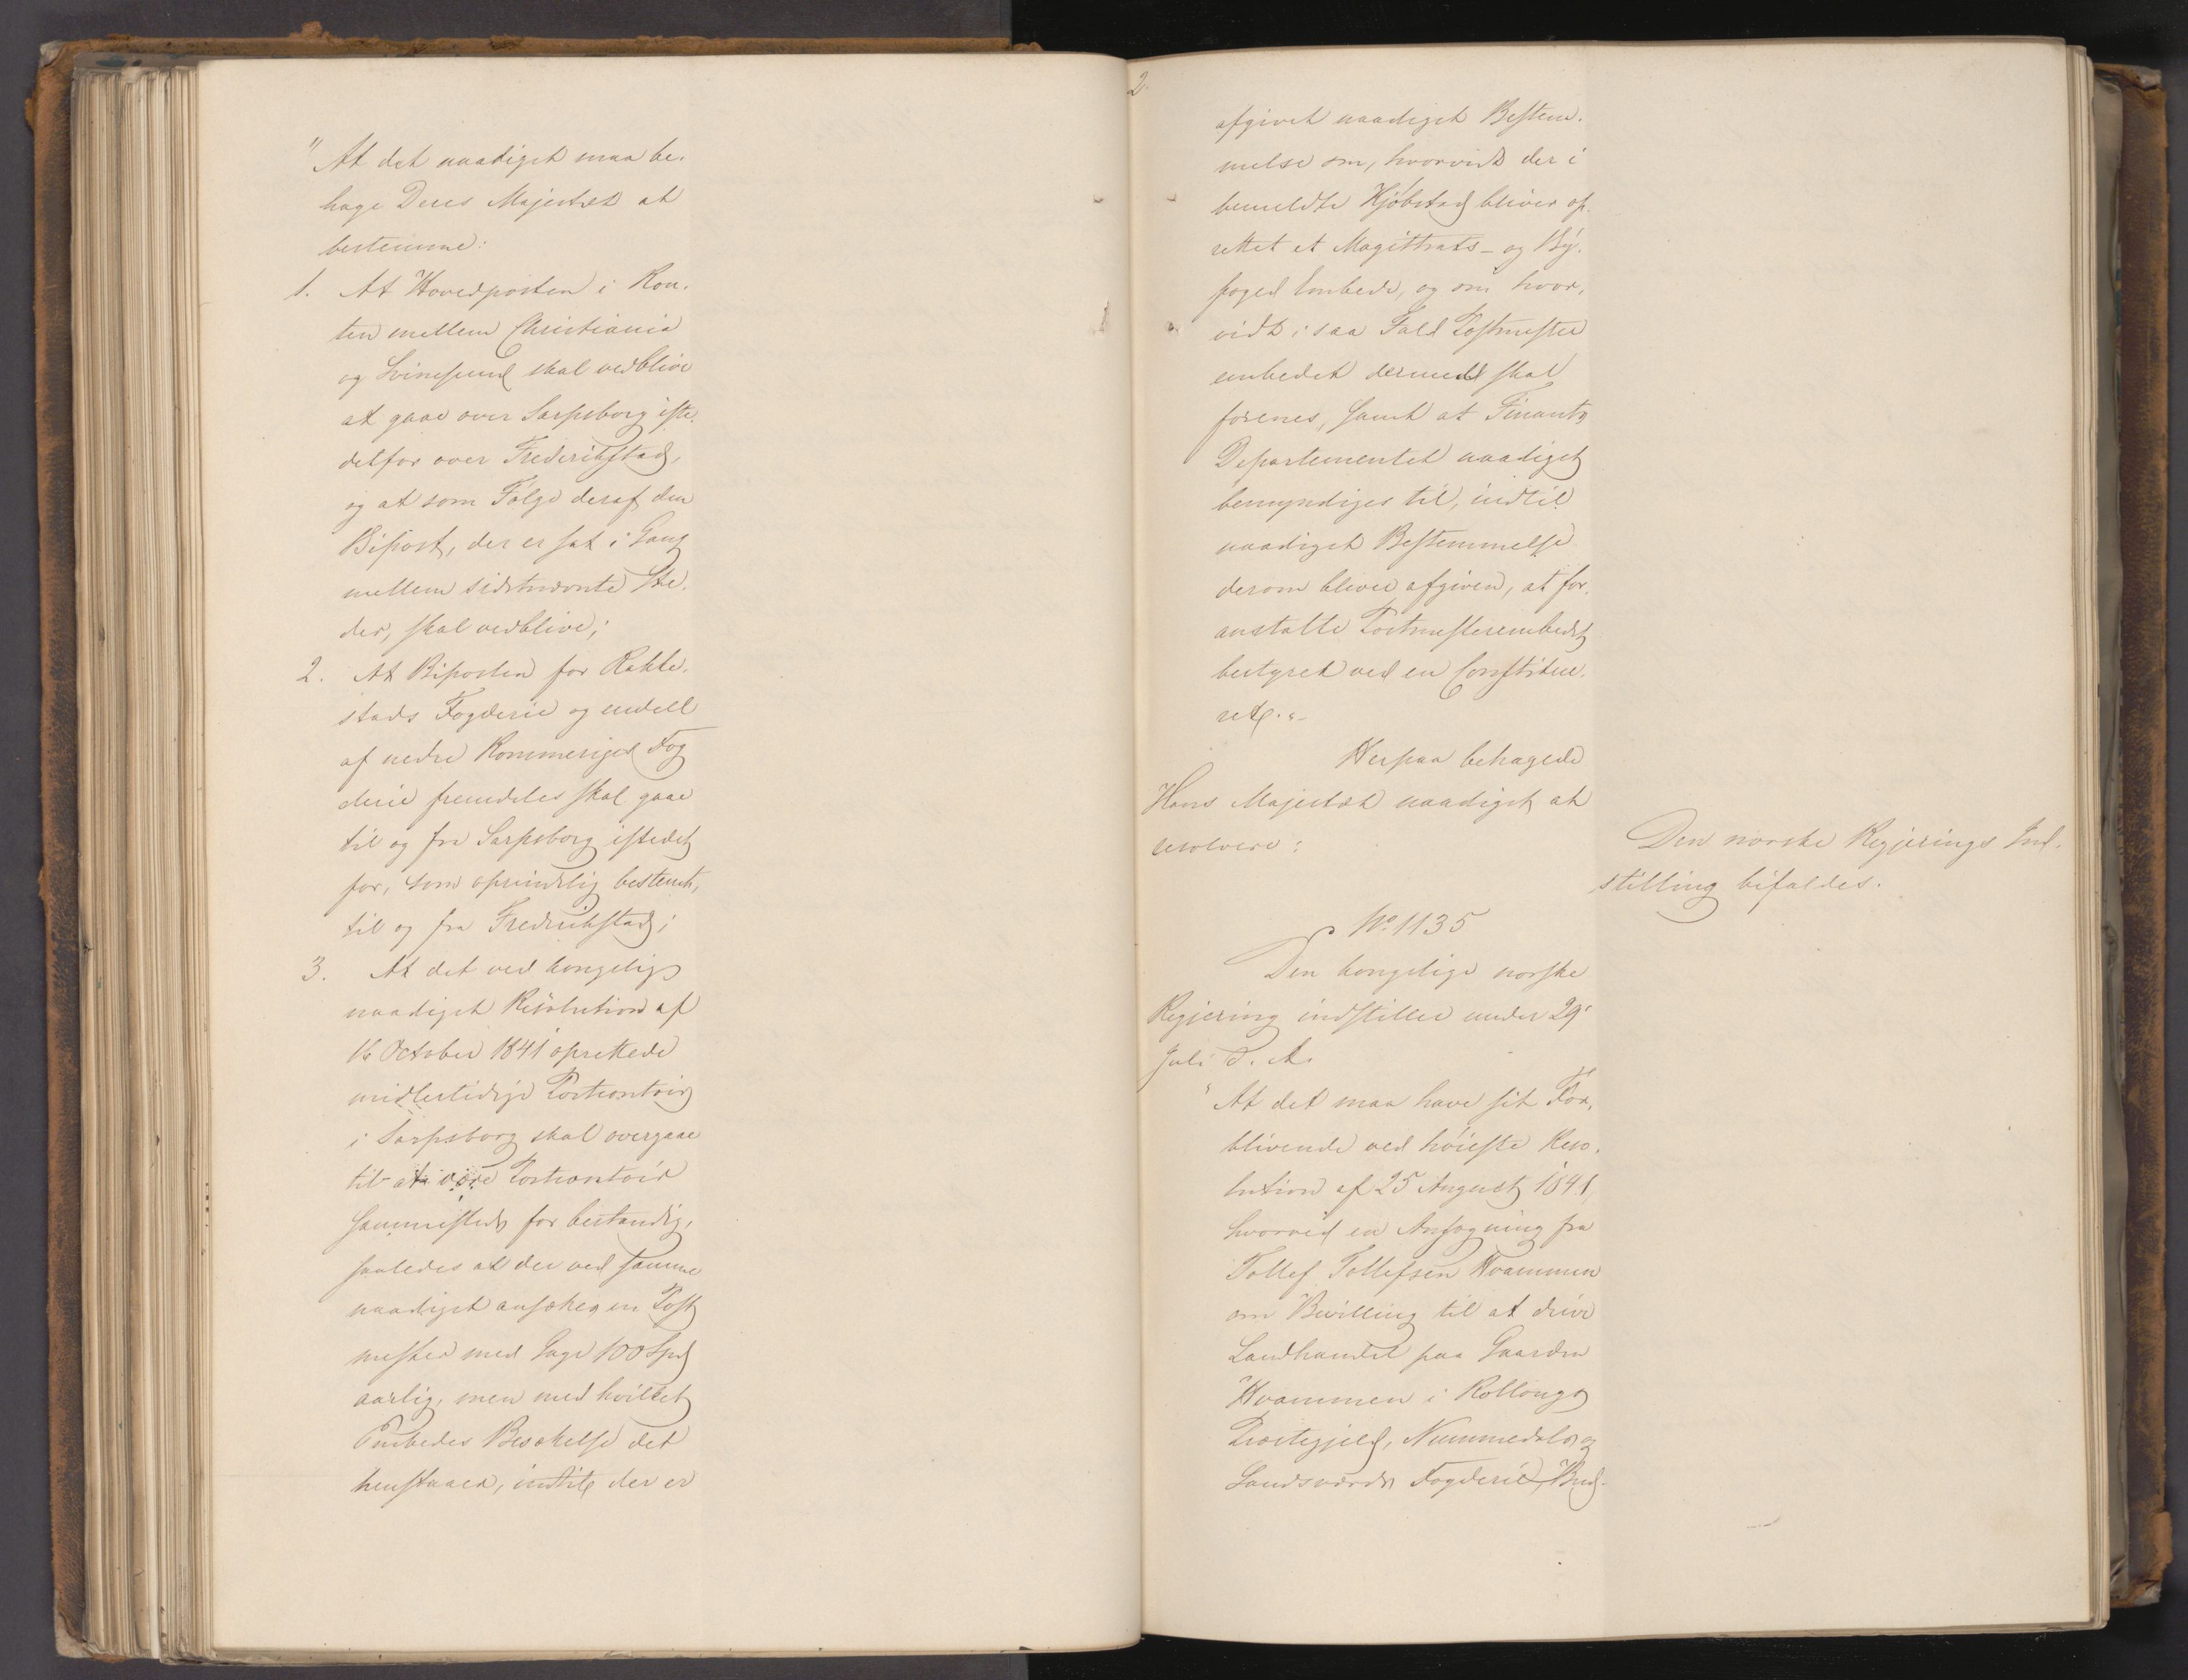 "At det naadigst maa be-
hage Deres Majestæt at
bestemme:
1. At Hovedposten i Rou-
ten mellem Christiania
og Svinesund skal vedblive
at gaae over Sarpsborg iste-
detfor over Frederikstad,
og at som Følge deraf den
Bipost, der er sat i Gang
mellem sidstnævnte Ste-
der, skal vedblive;
2. At Biposten for Rakke-
stads Fogderie og endeel
af nedre Rommeriges Fog
derie fremdeles skal gaae
til og fra Sarpsborg istedet
for, som oprindelig bestemt,
til og fra Fredrikstad;
3. At det ved kongelig
naadigst Resolution af
16 October 1841 oprettede
midlertidige Postcontoir
i Sarpsborg skal overgaae
til at være Postcontoir
sammesteds for bestandig,
saaledes at der ved samme
naadigst ansættes en Post
mester med Gage 100 Spd
aarlig, men med hvilket
Embedes Besættelse det
henstaaer, indtil der er
2.
afgivet naadigst Bestem-
melse om, hvorvidt der i
bemeldte Kjøbstad bliver op-
rettet et Magistrats- og By-
foged Embede, og om hvor-
vidt i saa Fald Postmester
embedet dermed skal
forenes, samt at Finants
Departementet naadigst
bemyndiges til, indtil
naadigst Bestemmelse
derom bliver afgiven, at for-
anstalte Postmesterembedet
bestyret ved en Constitue-
ret."
Herpaa behagede
Hans Majestæt naadigst at
resolvere:
Den norske Regjerings Ind-
stilling bifaldes.
No 1135
Den kongelige norske
Regjering indstiller under 29'
Juli d. A.
"At det maa have sit For-
blivende ved høieste Reso-
lution af 25 August 1841,
hvorved en Ansøgning fra
Tollef Tollefsen Hvammen
om Bevilling til at drive
Landhandel paa Gaarden
Hvammen i Rollougs
Præstegjeld, Nummedals og
Sandsværds Fogderie, Bud-